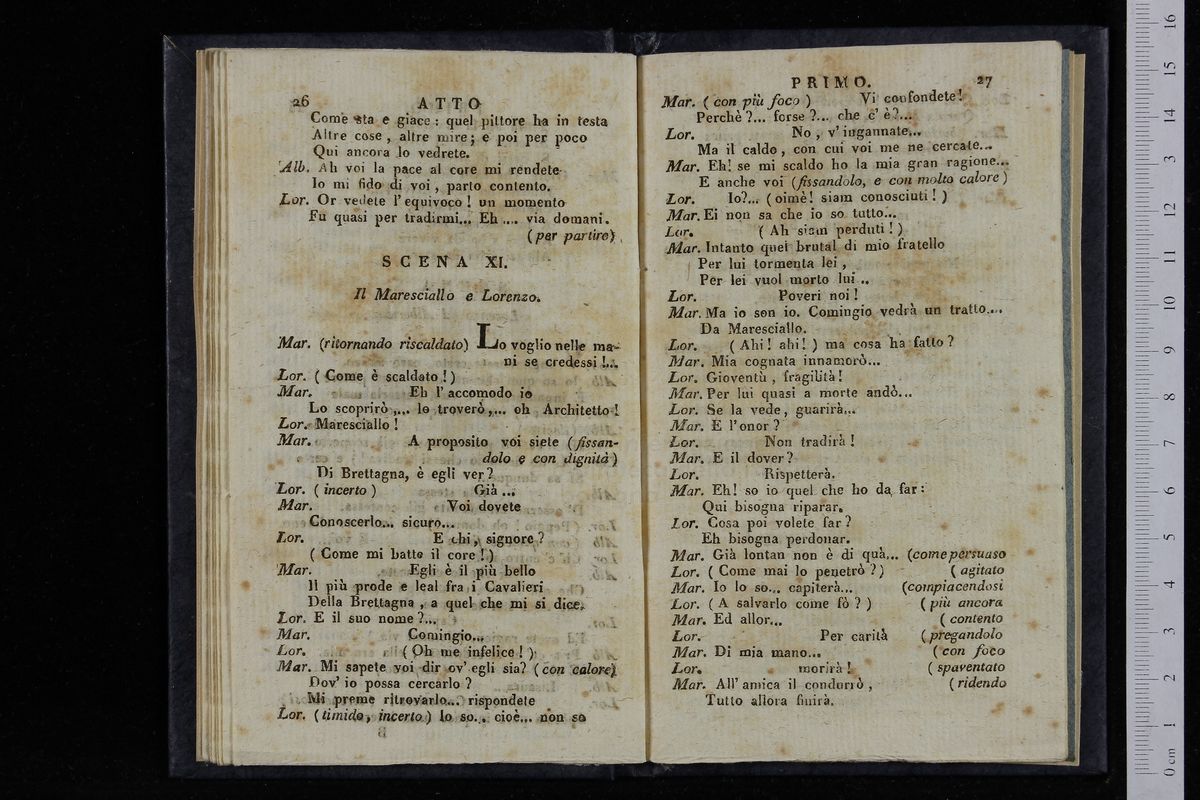 26 ATTO
Come sta e giace : quel pittore ha in testa
Altre cose , altre mire ; e poi per poco
Qui ancora lo vedrete.
Alb. Ah voi la pace al core mi rendete
Io mi fido di voi , parto contento.
Lor. Or vedete l'equivoco ! un momento
Fu quasi per tradirmi... Eh .... via domani.
(per partire)
SCENA XI.
Il Maresciallo e Lorenzo.
Mar. (ritornando riscaldato) Lo voglio nelle ma-
ni se credessi !...
Lor. ( Come è scaldato ! )
Mar. Eh l'accomodo io
Lo scoprirò ,... lo troverò ,... oh Architetto !
Lor. Maresciallo !
Mar. A proposito voi siete (fissan-
dolo e con dignità )
Di Brettagna, è egli ver ?
Lor. ( incerto ) Già ...
Mar. Voi dovete
Conoscerlo... sicuro...
Lor. E chi, signore ?
( Come mi batte il core ! )
Mar. Egli è il più bello
Il più prode e leal fra i Cavalieri
Della Brettagna , a quel che mi si dice.
Lor. E il suo nome ?...
Mar. Comingio...
Lor. ( Oh me infelice ! )
Mar. Mi sapete voi dir ov' egli sia? ( con calore)
Dov' io possa cercarlo ?
Mi preme ritrovarlo... rispondete
Lor. (timido, incerto ) Io so... cioè... non so
B
PRIMO. 27
Mar. ( con più foco ) Vi confondete!
Perchè ?... forse ?... che c' è ?...
Lor. No , v' ingannate...
Ma il caldo , con cui voi me ne cercate...
Mar. Eh! se mi scaldo ho la mia gran ragione...
E anche voi (fissandolo, e con molto calore )
Lor. Io?... ( oimè ! siam conosciuti ! )
Mar. Ei non sa che io so tutto...
Lor. ( Ah siam perduti ! )
Mar. Intanto quel brutal di mio fratello
Per lui tormenta lei ,
Per lei vuol morto lui ..
Lor. Poveri noi !
Mar. Ma io son io. Comingio vedrà un tratto....
Da Maresciallo.
Lor. ( Ahi ! ahi ! ) ma cosa ha fatto ?
Mar. Mia cognata innamorò...
Lor. Gioventù , fragilità !
Mar. Per lui quasi a morte andò...
Lor. Se la vede, guarirà...
Mar. E l'onor ?
Lor. Non tradirà !
Mar. E il dover ?
Lor. Rispetterà.
Mar. Eh! so io quel che ho da far :
Qui bisogna riparar.
Lor. Cosa poi volete far ?
Eh bisogna perdonar.
Mar. Già lontan non è di quà... (come persuaso
Lor. ( Come mai lo penetrò ? ) ( agitato
Mar. Io lo so... capiterà... (compiacendosi
Lor. ( A salvarlo come fò ? ) ( più ancora
Mar. Ed allor... ( contento
Lor. Per carità ( pregandolo
Mar. Di mia mano... ( con foco
Lor. morirà ! ( spaventato
Mar. All' amica il condurrò , ( ridendo
Tutto allora finirà.
16
15
14
13
12
11
10
9
8
7
6
5
4
3
2
1
0 cm